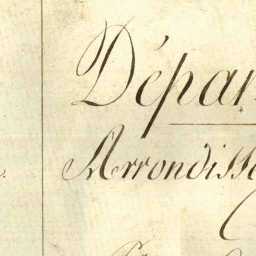 Dépar
Arrondisse